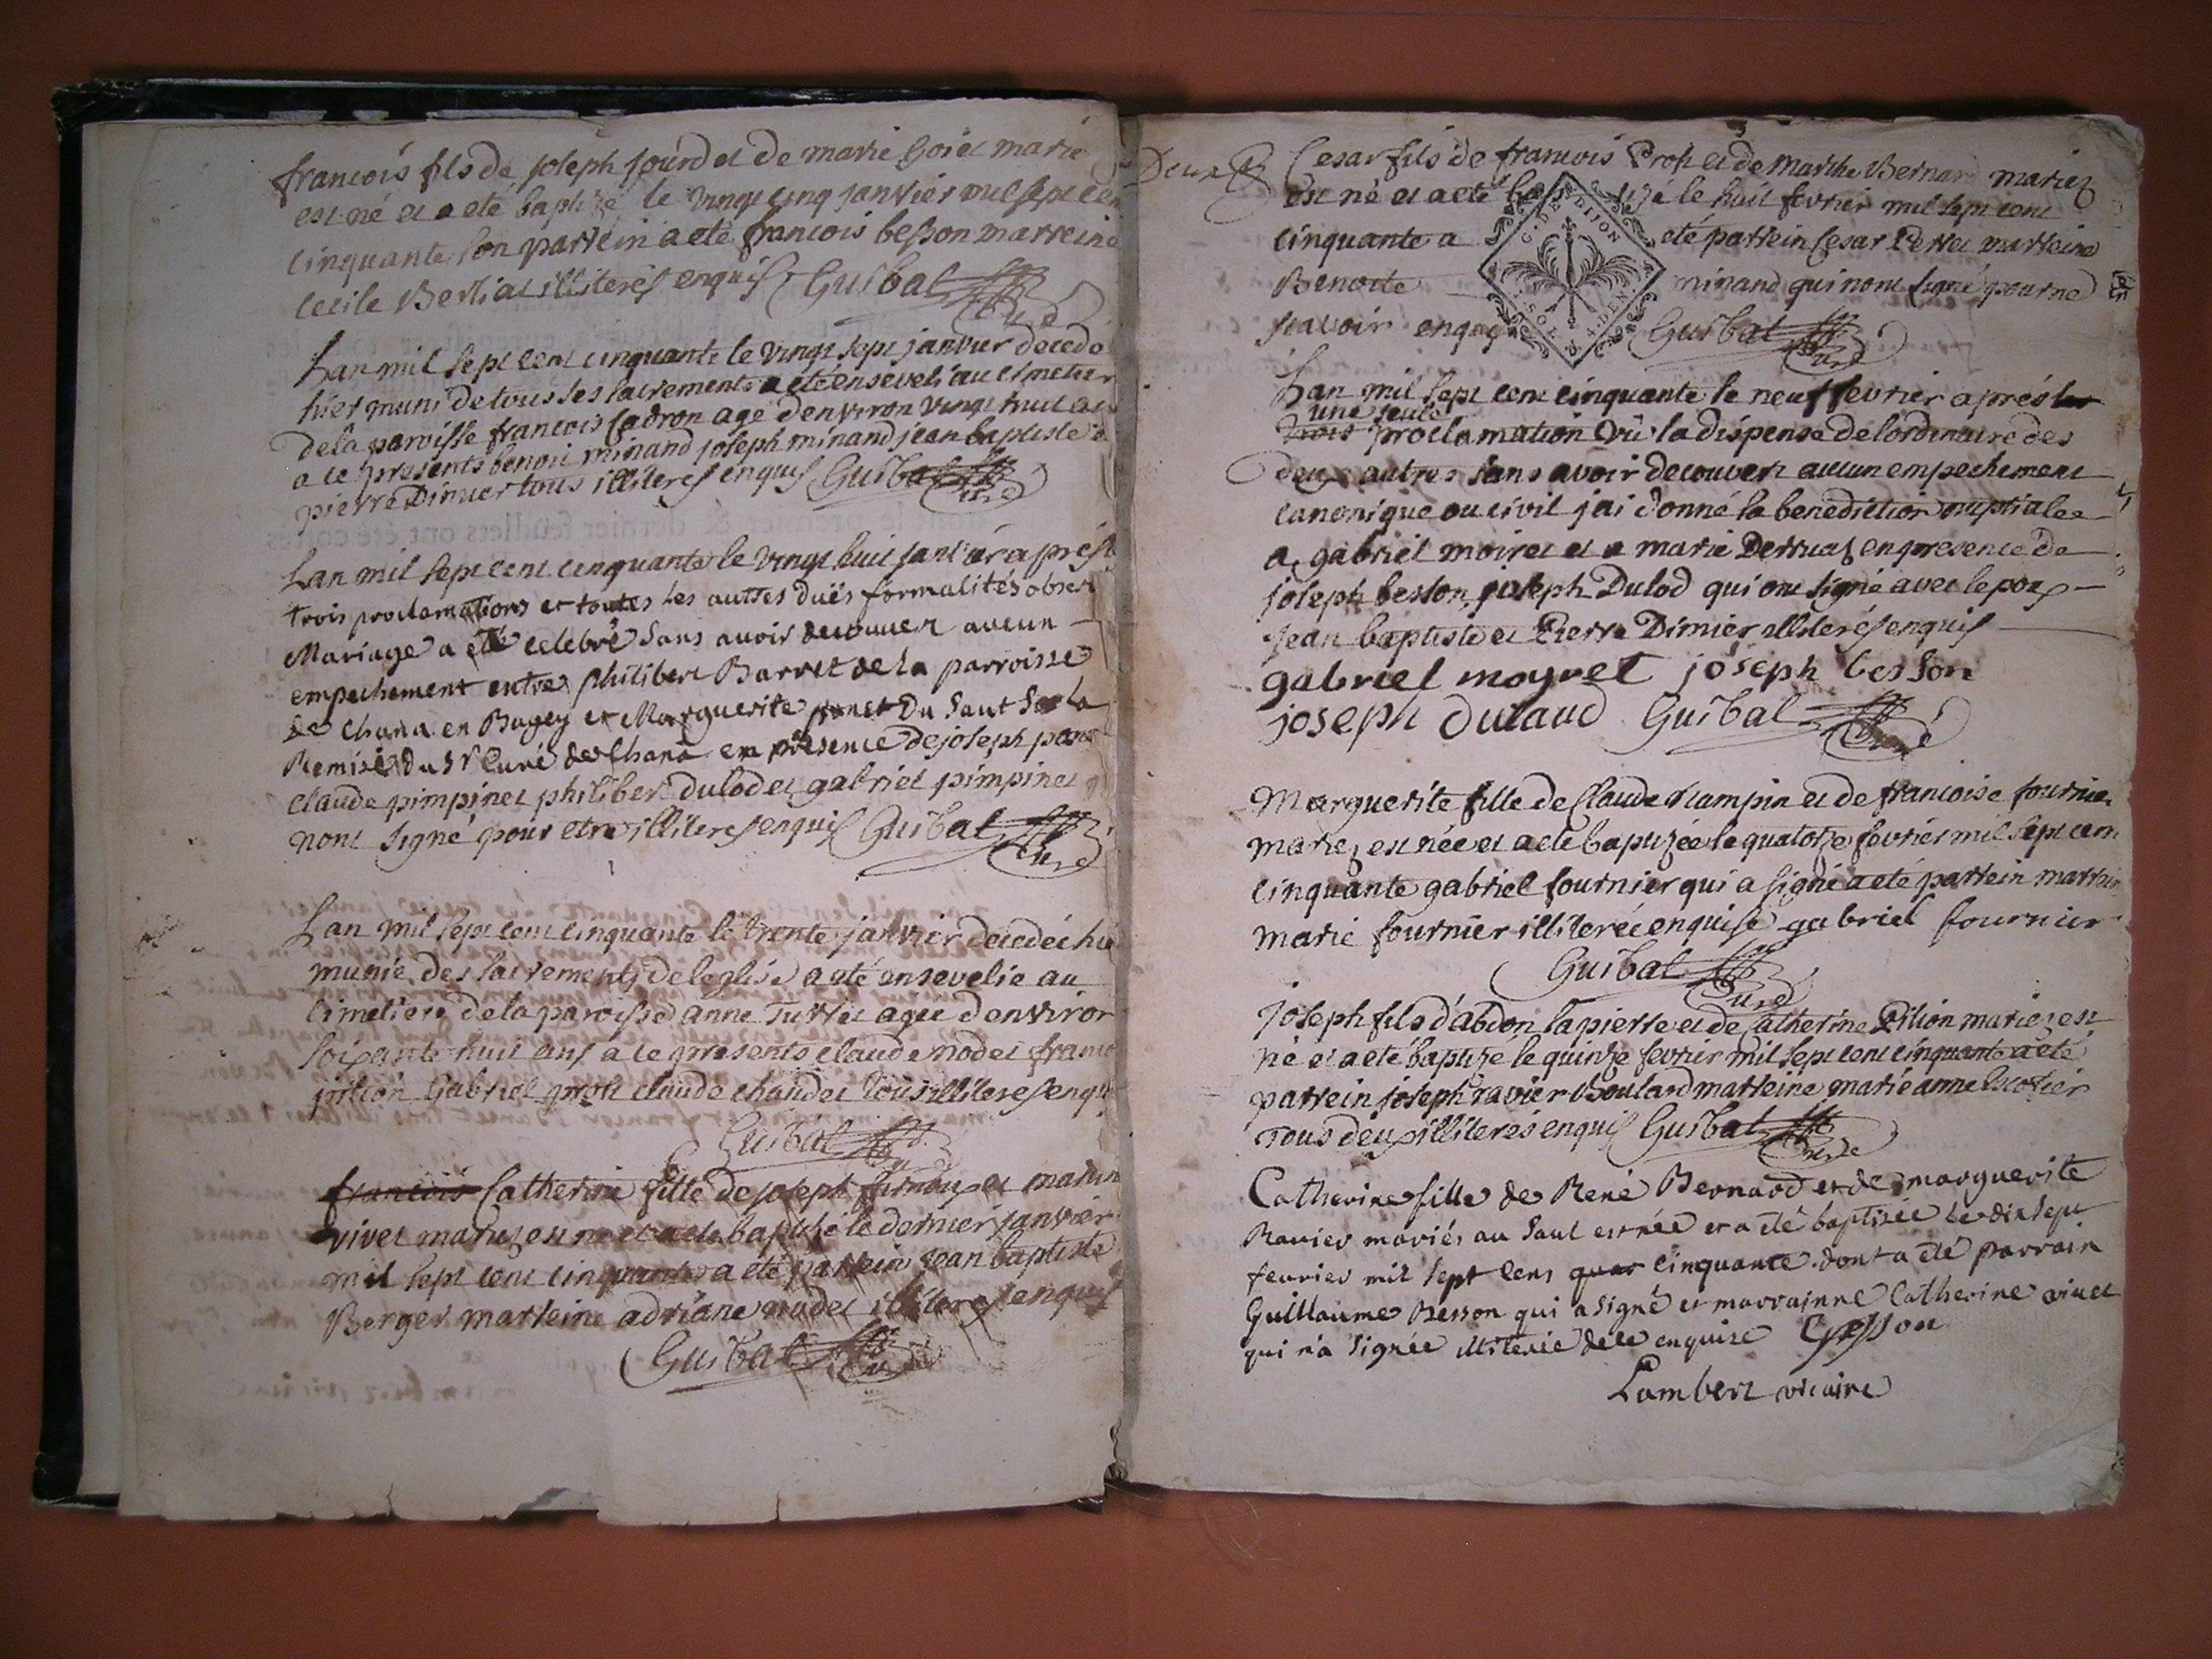 francois fils de joseph jourd et de marie goiet marié
est né et a eté baptizé le vingt cinq janvier mil sept cen
cinquante son parrein a eté francois besson marreine
cecile Berliat illiterés enquis Guibal Curé
Lan mil sept cent cinquante le vingt sept janvier decedé
hier muni de tous les sacrements a eté enseveli au cimetier
de la paroisse francois Cadron agé denviron vingt huit ans
a ce presents benoit minand joseph minand jean baptiste
pierre Dimier tous illiteres enquis Guibal Curé
Lan mil sept cent cinquante le vingt huit janvier aprés
trois proclamations et toutes les autres duës formalités obser
Mariage a été celebré sans avoir decouvert aucun
empechement entre philibert Barret de la parroisse
de Chana en Bugey et Marguerite du Saut Sur la
Remise du Sr Curé de Chana en présence de joseph
claude pimpinet philibert dulod et gabriel pimpinet q
nont signé pour etre illiteres enquis Guibal Curé
Lan mil sept cent cinquante le trente janvier decedée hie
munie des sacrements de leglise a eté ensevelie au
cimetiere de la paroisse anne agée denviron
soixante huit ans a ce presents claude nodet franco
pition Gabriel prost claude chaudet tous illiteres enqui
Guibal Curé
francois Catherine fille de joseph et
vivet mariez est né et a eté baptizé le dernier janvier
mil sept cent cinquante a eté parrein jean baptiste
Berger marreine adriane nodet illiteres enquis
Guibal Curé
Deux Cesar fils de francois Prost et de Marthe Bernard mariez
est né et a eté bap tizé le huit fevrier mil sept cent
cinquante a eté parrein Cesar Perret marreine
Benoite minand qui nont signé pour ne
scavoir enquis Guibal Curé
G. DE DIJON
1. SOL 4. DEN.
Lan mil sept cent cinquante le neuf fevrier aprés les
une seule
trois proclamation vû la dispense de lordinaire des
deux autres sans avoir decouvert aucun empechement
canonique ou civil jai donné la benediction nuptiale
a gabriel moiret et a marie Derruaz en presence de
joseph besson, joseph Dulod qui ont signé avec lepoux
jean baptiste et Pierre Dimier illiterés enquis
gabriel moyret joseph besson
joseph dulaud Guibal Curé
Marguerite fille de Claude et de francoise fournier
mariez est née et a eté baptizée le quatorze fevrier mil sept cent
cinquante gabriel fournier qui a signé a eté parrein marrein
marie fournier illiterée enquise gabriel fournier
Guibal Curé
joseph fils d'abdon lapierre et de Catherine Pition mariez est
né et a eté baptizé le quinze fevrier mil sept cent cinquante a eté
parrein joseph ravier Boulard marreine marie anne Escotier
Tous deux illiterés enquis Guibal Curé
Catherine fille de René Bernard et de marguerite
Ravier mariés au Saut est née et a été baptisée le dix sept
fevrier mil sept cens quar cinquante dont a été parrain
Guillaume Besson qui a signé et marrainne Catherine vivet
qui n'a signée illiterée dele enquise Gbesson
Lambert vicaire